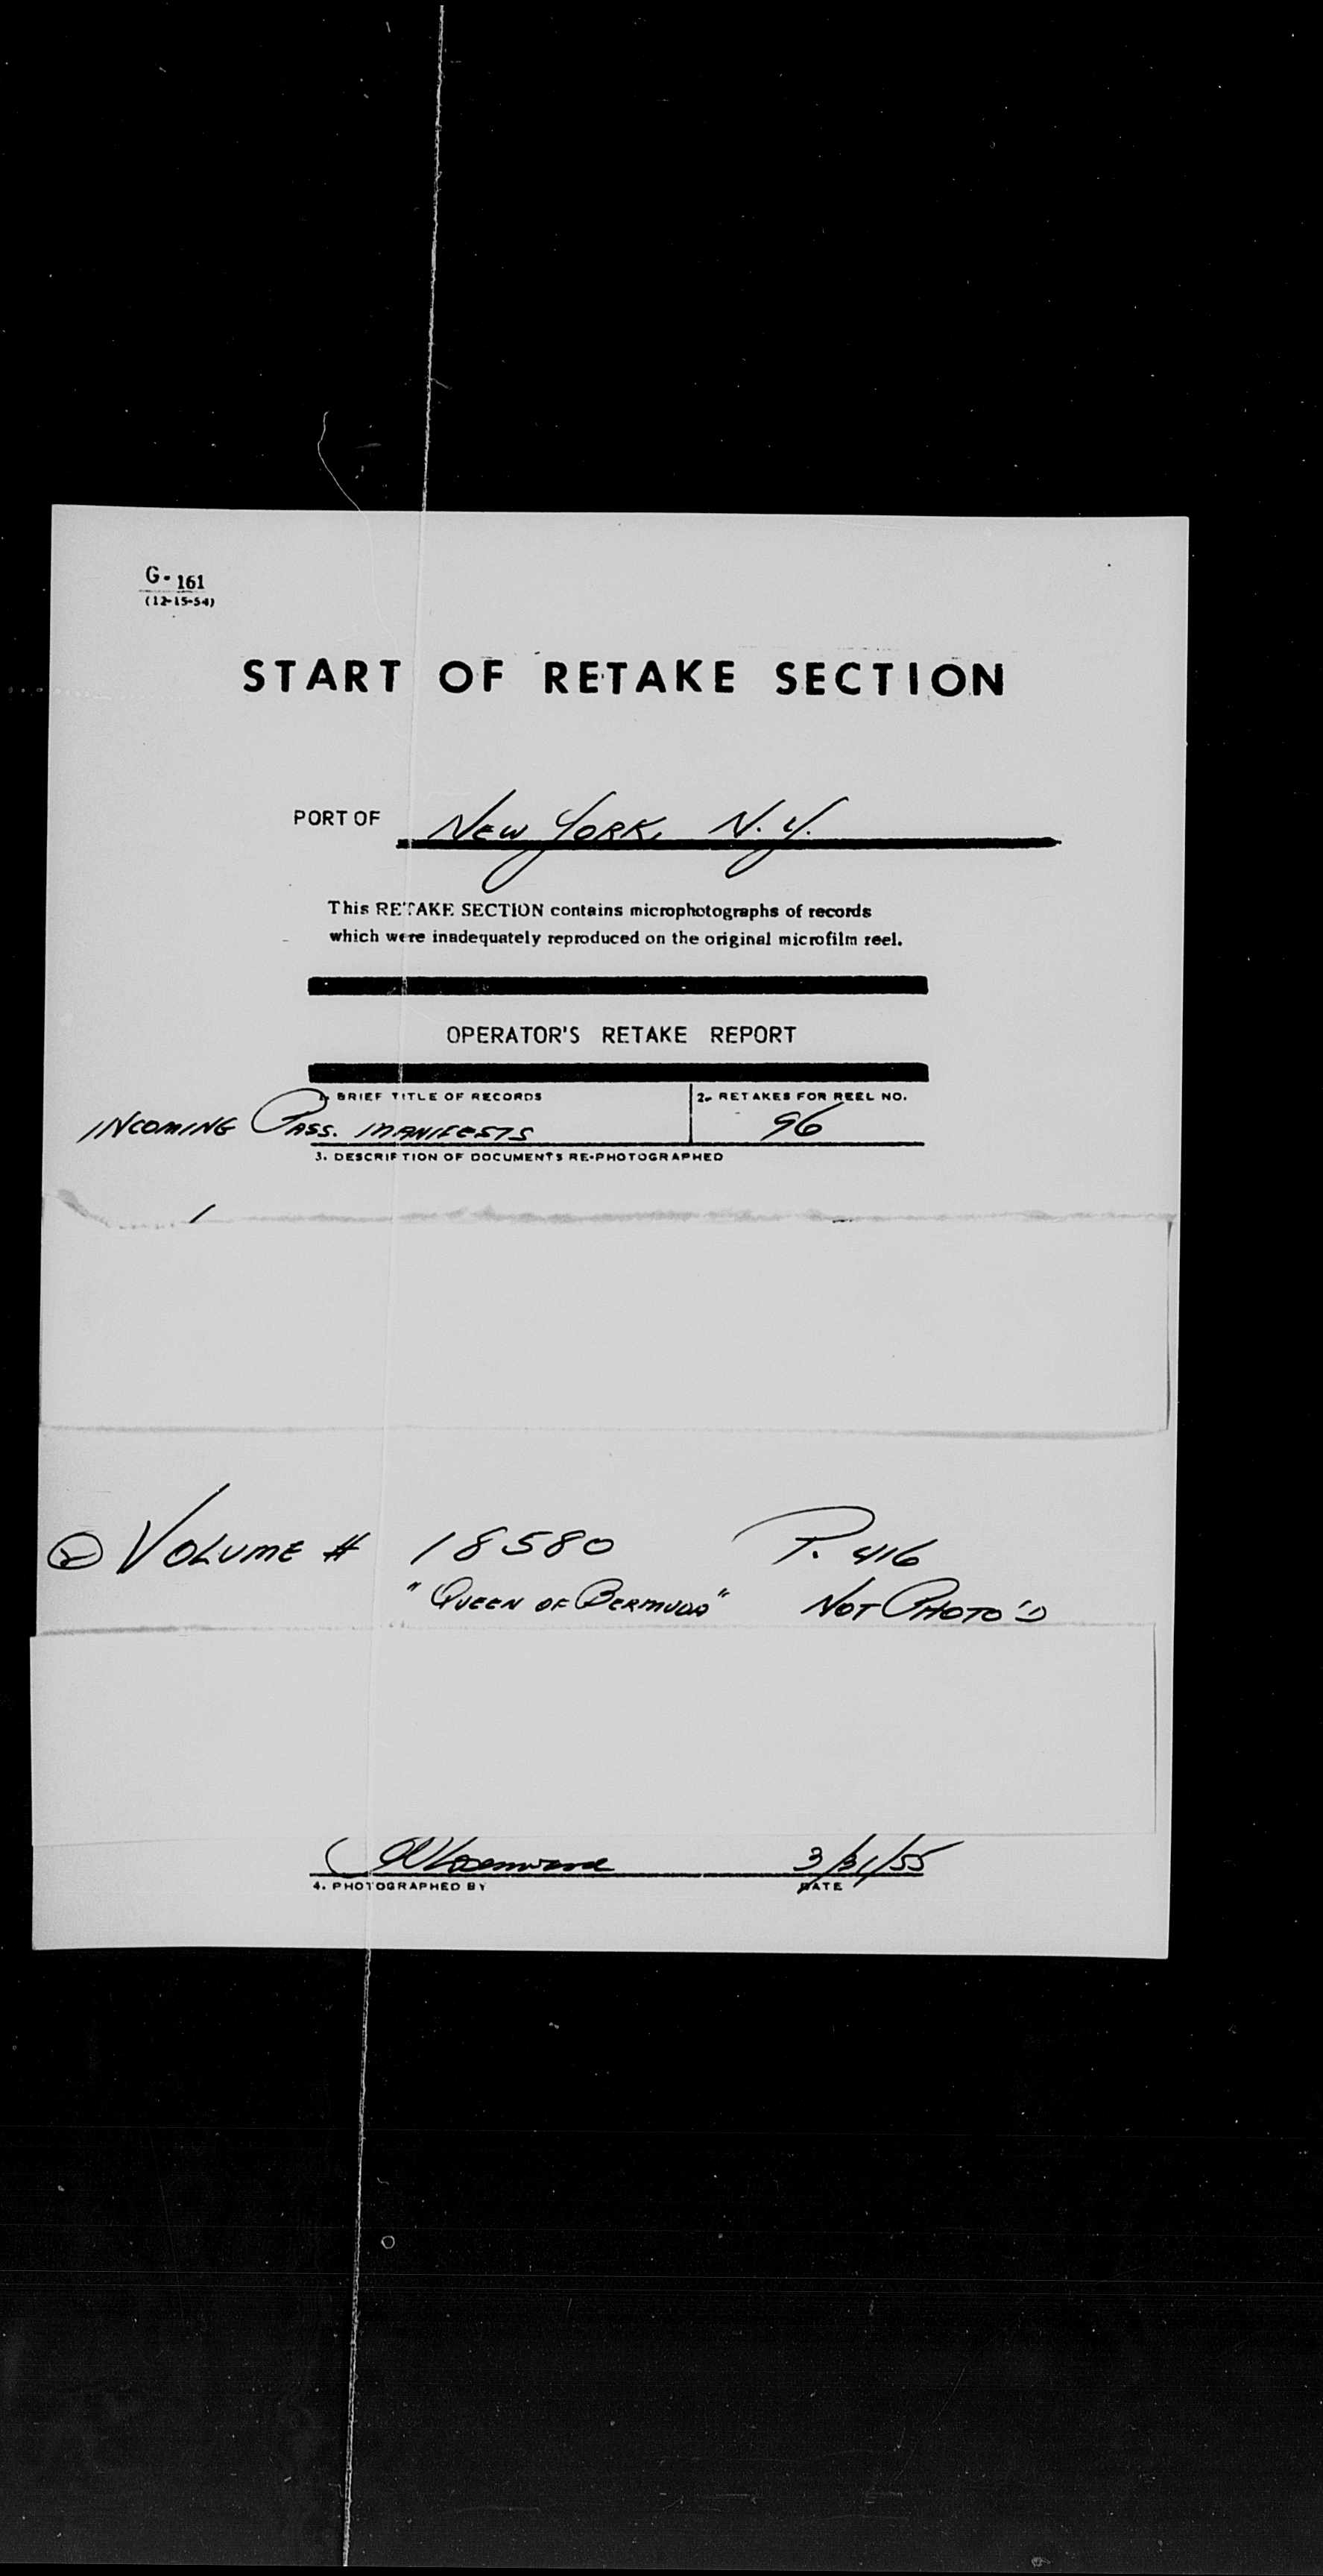 G-161
(12-15-54)
START OF RETAKE SECTION
PORT OF New York, N.Y.
This RETAKE SECTION contains microphotographs of records
which were inadequately reproduced on the original microfilm reel.
OPERATOR'S RETAKE REPORT
1. BRIEF TITLE OF RECORDS 2. RETAKES FOR REEL NO.
INCOMING PASS. MANIFESTS 96
3. DESCRIPTION OF DOCUMENTS RE-PHOTOGRAPHED
② VOLUME # 18580 P. 416
"QUEEN OF BERMUDA" NOT PHOTO'D
3/31/55
4. PHOTOGRAPHED BY DATE